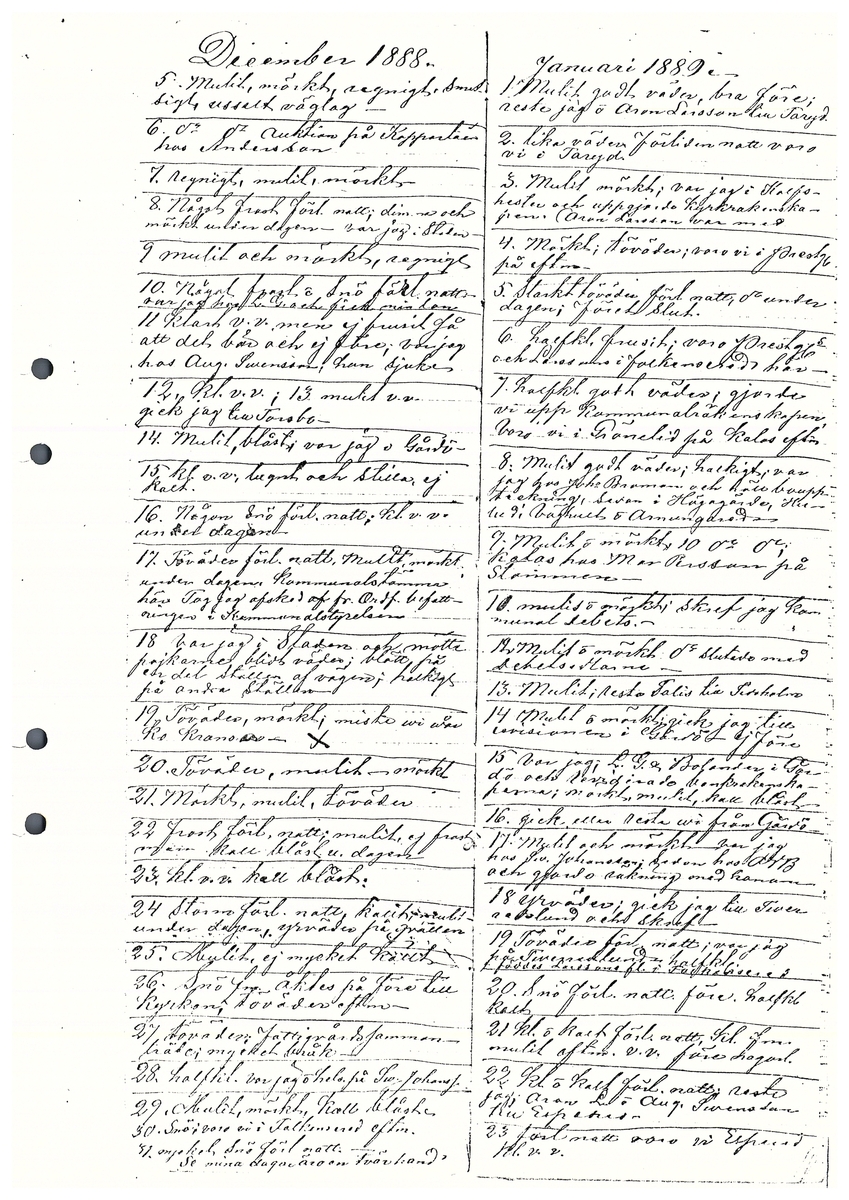 December 1888.
5. Mulit, mörkt, regnigt, smut-
sigt, usselt väglag —
6. do do Auktion på
hos Andersson
7. regnigt, mulit, mörkt
8. Något frost förl. natt; dimma och
mörkt under dagen — var jag i Staden
9 mulit och mörkt, regnigt
10. Något frost o Snö förl. natt
var jag
11 Klart v.v. men ej frusit så
att det bär och ej före; var jag
hos Aug. Swensson, han sjuk
12. kl. v.v.; 13 mulit v.v.
gick jag till Torsbo —
14. Mulit, blåst; var jag i Gårdö —
15 kl. v.v. lugnt och stilla, ej
kalt.
16. Någon Snö förl. natt; kl. v.v.
under dagen —
17. Töväder förl. natt, Mulit, mörkt
under dagen, Kommunalstämma
här Tog jag afsked af fr. Ordf. befatt-
ningen i Kommunalstyrelsen
18 var jag i Staden och mötte
pojkarne, blidt väder; blött på
en del ställen af vägen; halkigt
på andra ställen
19. Töväder, mörkt; miste wi wår
Ko Kranoa — X
20. Töväder, mulit — mörkt
21. Mörkt, mulit, töväder
22 frost förl. natt; mulit, ej frost
men kall blåst u. dagen
23. kl. v.v. kall blåst.
24 Storm förl. natt, kallt; mulit
under dagen, yrväder på qvällen
25. Mulit, ej mycket kallt
26. Snö fm. åktes på före till
Kyrkan, töväder eftm —
27 töväder; fattigvårdssamman-
träde; mycket bråk —
28. halfkl. var jag o hels. på Sv. Johansf.
29. Mulit, mörkt, kall blåst
30. Snö; voro vi i Falkensered eftm.
31. mycket Snö förl. natt. —
Se mina dagar äro en tvärhand
Januari 1889 —
1. Mulit godt väder, bra före;
reste jag o Aron Larsson till Taryd
2. lika väder förliden natt voro
vi i Taryd.
3. Mulit mörkt; var jag i
och uppgjorde Kyrkräkenska-
pen; (Aron Larsson var med
4. Mörkt; töväder; voro vi i Prestg.
på eftm —
5. Starkt töväder förl. natt, do under
dagen; föret slut.
6. halfkl. frusit; voro Prestg.
och Larssons i Falkensered här —
7. halfkl. godt väder; gjorde
vi upp Kommunalräkenskapen,
voro vi i Grönelid på Kalas eftm
8. Mulit godt väder; halkigt; var
jag hos Joh. Broman och höll boupp-
teckning, sedan i Högagärde,
9. Mulit o mörkt, 10 do do;
Kalas hos Mor Persson på
Stommen —
10. mulit o mörkt; skref jag Kom-
munal debets. —
12. Mulit o mörkt do slutade med
debetsedlarne —
13. Mulit; reste Talis till Tiveholm
14 Mulit o mörkt; gick jag till
revisionen i Gårdö — ej före
15 var jag, L. G. o Bolander i Går-
dö och reviderade
mörkt, mulit, kall blåst
16. gick eller reste wi från Gårdö
17. Mulit och mörkt — var jag
hos Sv. Johansson; sedan hos
och gjorde räkning med honom
18 yrväder; gick jag till Tiver-
edslund och skref —
19 Töväder förl. natt; var jag
på halfkl.
föddes Larssons fl. i Falkensered
20. Snö förl. natt. före. halfkl
kalt
21 kl. o kalt förl. natt, kl. fm.
mulit eftm. v.v. före
22 kl o kalt förl. natt; reste
jag, Aron L. o Aug. Swensson
till Espered —
23 förl natt voro vi Espered
kl. v.v.